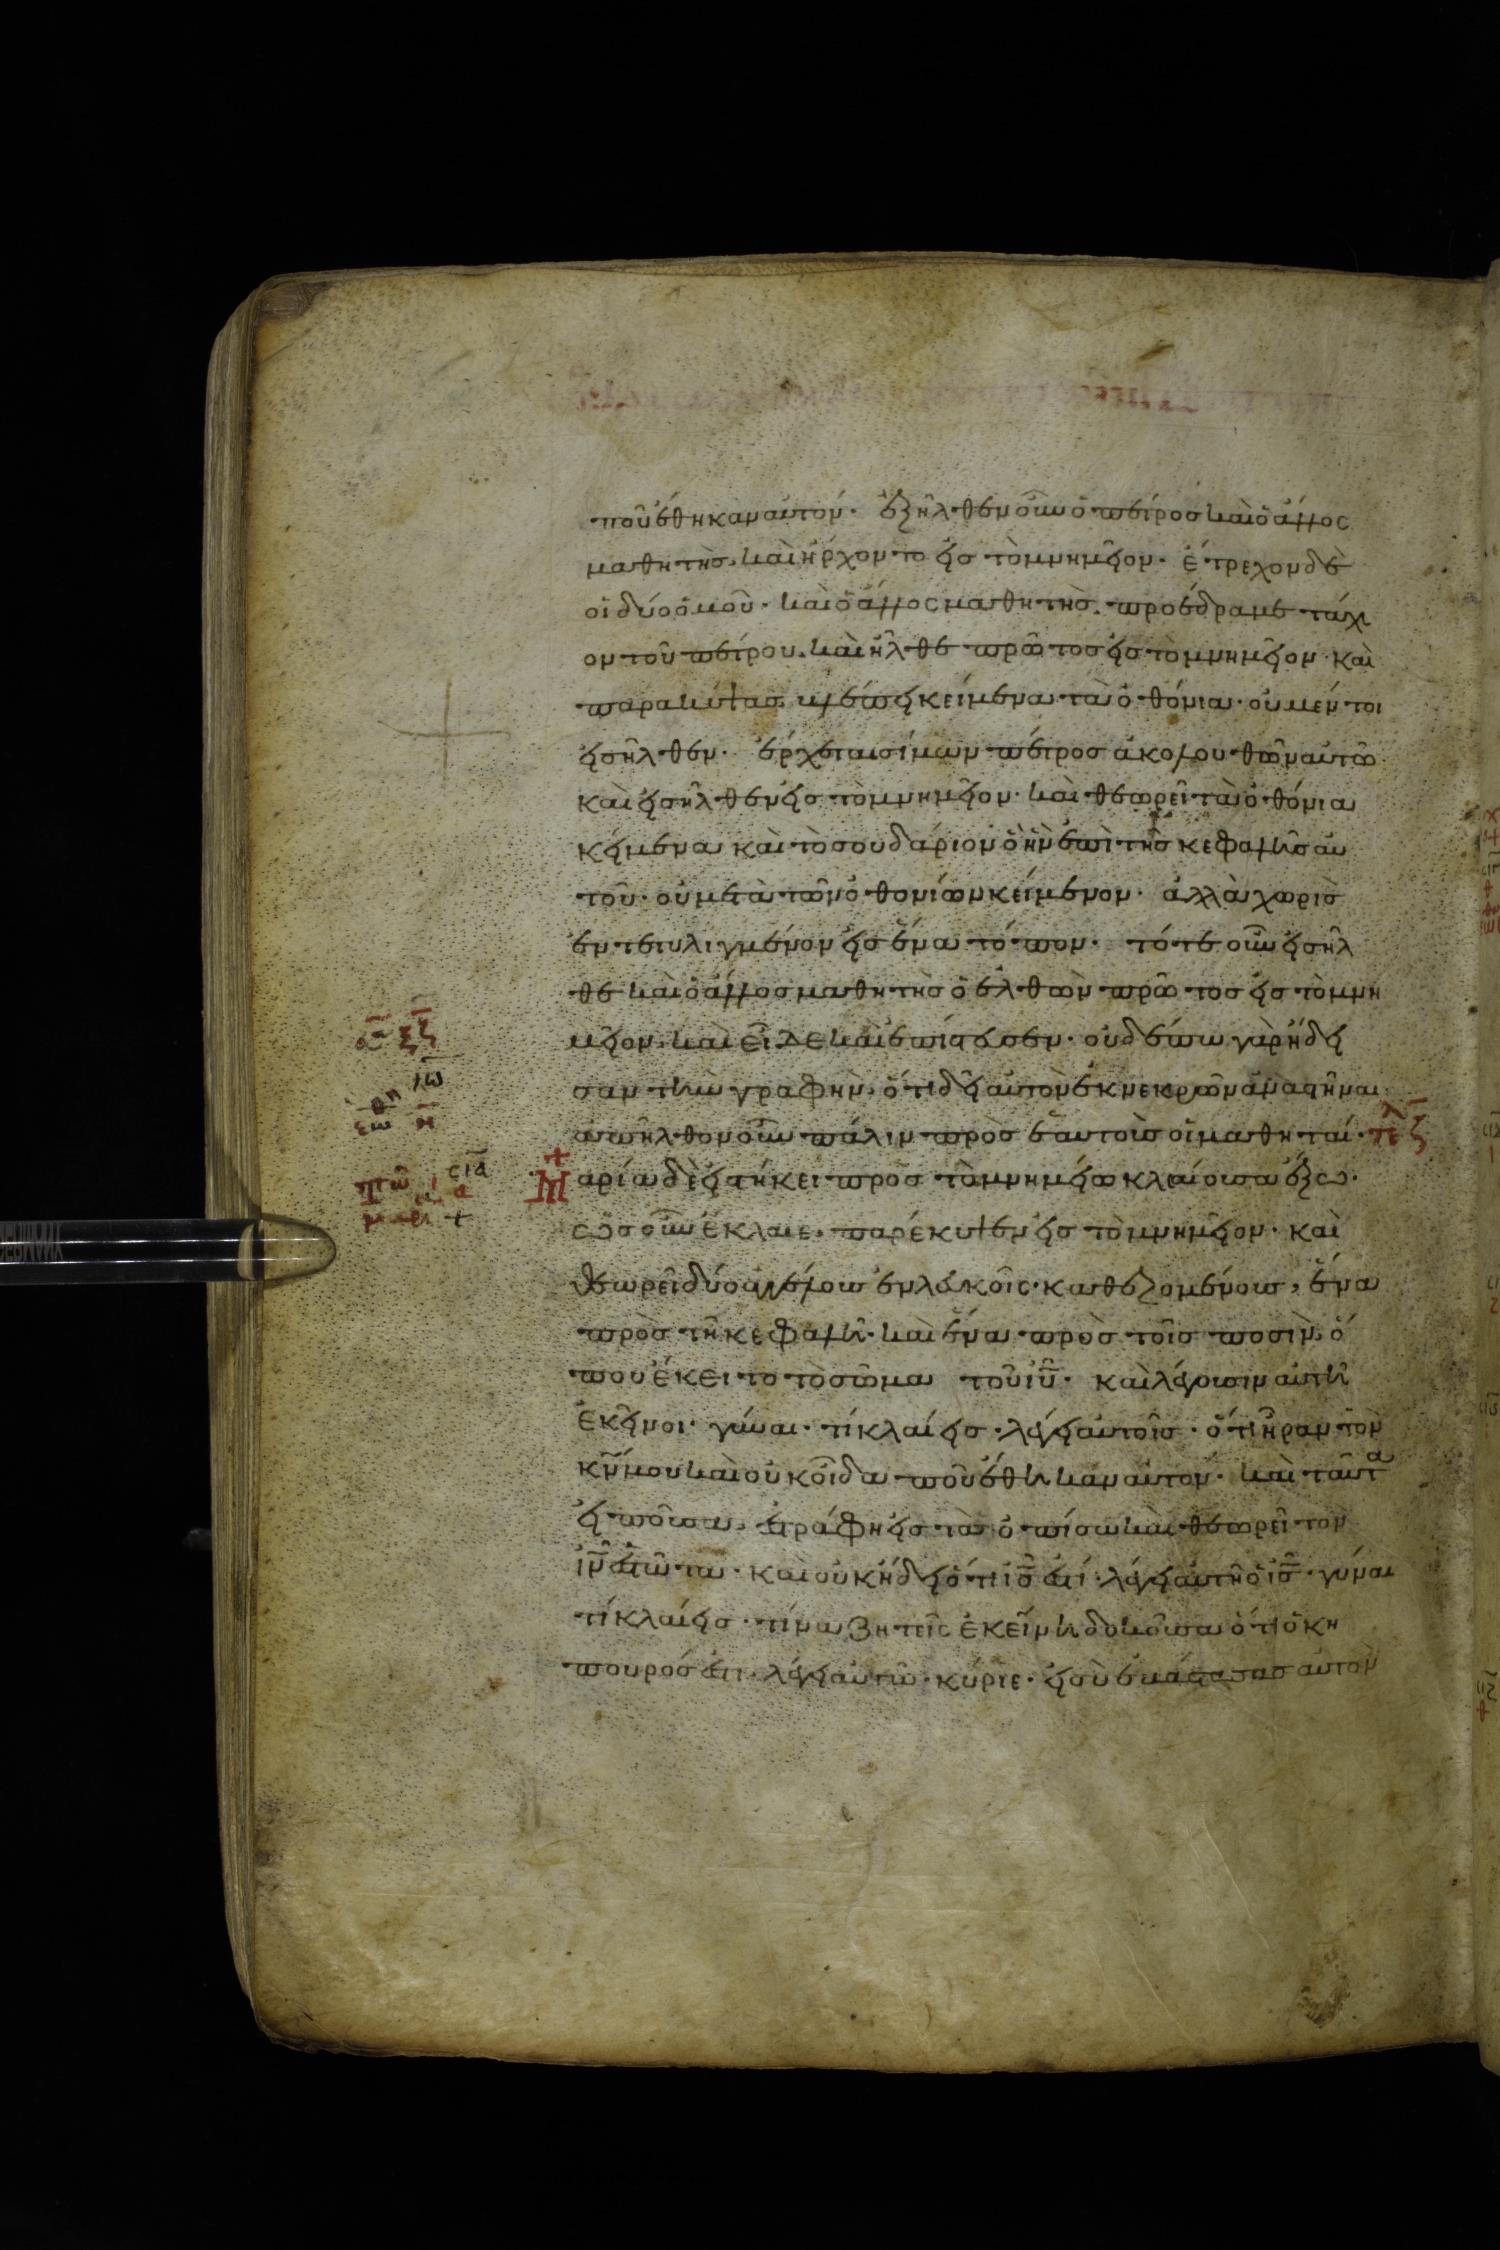 ποῦ ἔθηκαν αὐτόν· ἐξῆλθεν οὖν ὁ πέτρος καὶ ὁ ἄλλος
μαθητὴς. καὶ ἤρχοντο εἰς τὸ μνημεῖον· ἔτρεχον δὲ
οἱ δύο ὁμοῦ· καὶ ὁ ἄλλος μαθητὴς. προέδραμε τάχι
ον τοῦ πέτρου. καὶ ἦλθε πρῶτος εἰς τὸ μνημεῖον· καὶ
παρακύψας βλέπει κείμενα τὰ ὀθόνια· οὐ μέντοι
εἰσῆλθεν· ἔρχεται σίμων πέτρος ἀκολουθῶν αὐτῶ
καὶ εἰσῆλθεν εἰς τὸ μνημεῖον· καὶ θεωρεῖ τὰ ὀθόνια
κείμενα καὶ τὸ σουδάριον ὃ ἦν ἐπὶ τῆς κεφαλῆς αὐ
τοῦ· οὐ μετὰ τῶν ὀθονίων κείμενον· ἀλλὰ χωρὶς
ἐντετυλιγμένον εἰς ἕνα τόπον· τότε οὖν εἰσῆλ
θε καὶ ὁ ἄλλος μαθητὴς ὁ ἐλθὼν πρῶτος εἰς τὸ μνη
μεῖον. καὶ εἶδε καὶ ἐπίστευσεν· οὐδέπω γὰρ ἤδει
σαν τὴν γραφὴν. ὅτι δεῖ αὐτὸν ἐκ νεκρῶν ἀναστῆναι
ἀπῆλθον οὖν πάλιν πρὸς ἑαυτοὺς οἱ μαθηταί·
Μαρία δὲ εἱστήκει πρὸς τὸ μνημείω κλαίουσα ἔξω·
ὡς οὖν ἔκλαιε. παρέκυψεν εἰς τὸ μνημεῖον· καὶ
θεωρεῖ δύο ἀγγέλους ἐν λευκοῖς· καθεζομένους, ἕνα
πρὸς τῆ κεφαλῆ· καὶ ἕνα πρὸς τοῖς ποσὶν. ὅ
που ἔκειτο τὸ σῶμα τοῦ ιυ· καὶ λέγουσιν αὐτῆ
ἐκεῖνοι· γύναι· τί κλαίεις· λέγει αὐτοῖς· ὅτι ἦραν τὸν
κν μου καὶ οὐκ οἶδα ποῦ ἔθηκαν αὐτον· καὶ ταῦτα
εἰποῦσα. ἐστράφη εἰς τὰ ὀπίσω καὶ θεωρεῖ τὸν
ιν ἑστῶτα· καὶ οὐκ ἤδει ὅτι ις ἐστί· λέγει αὐτῆ ὁ ις· γύναι
τί κλαίεις· τίνα ζητεῖς ἐκείνη δοκοῦσα ὅτι ὁ κη
πουρός ἐστι. λέγει αὐτῶ· κύριε· εἰ σὺ ἐβάστασας αὐτὸν